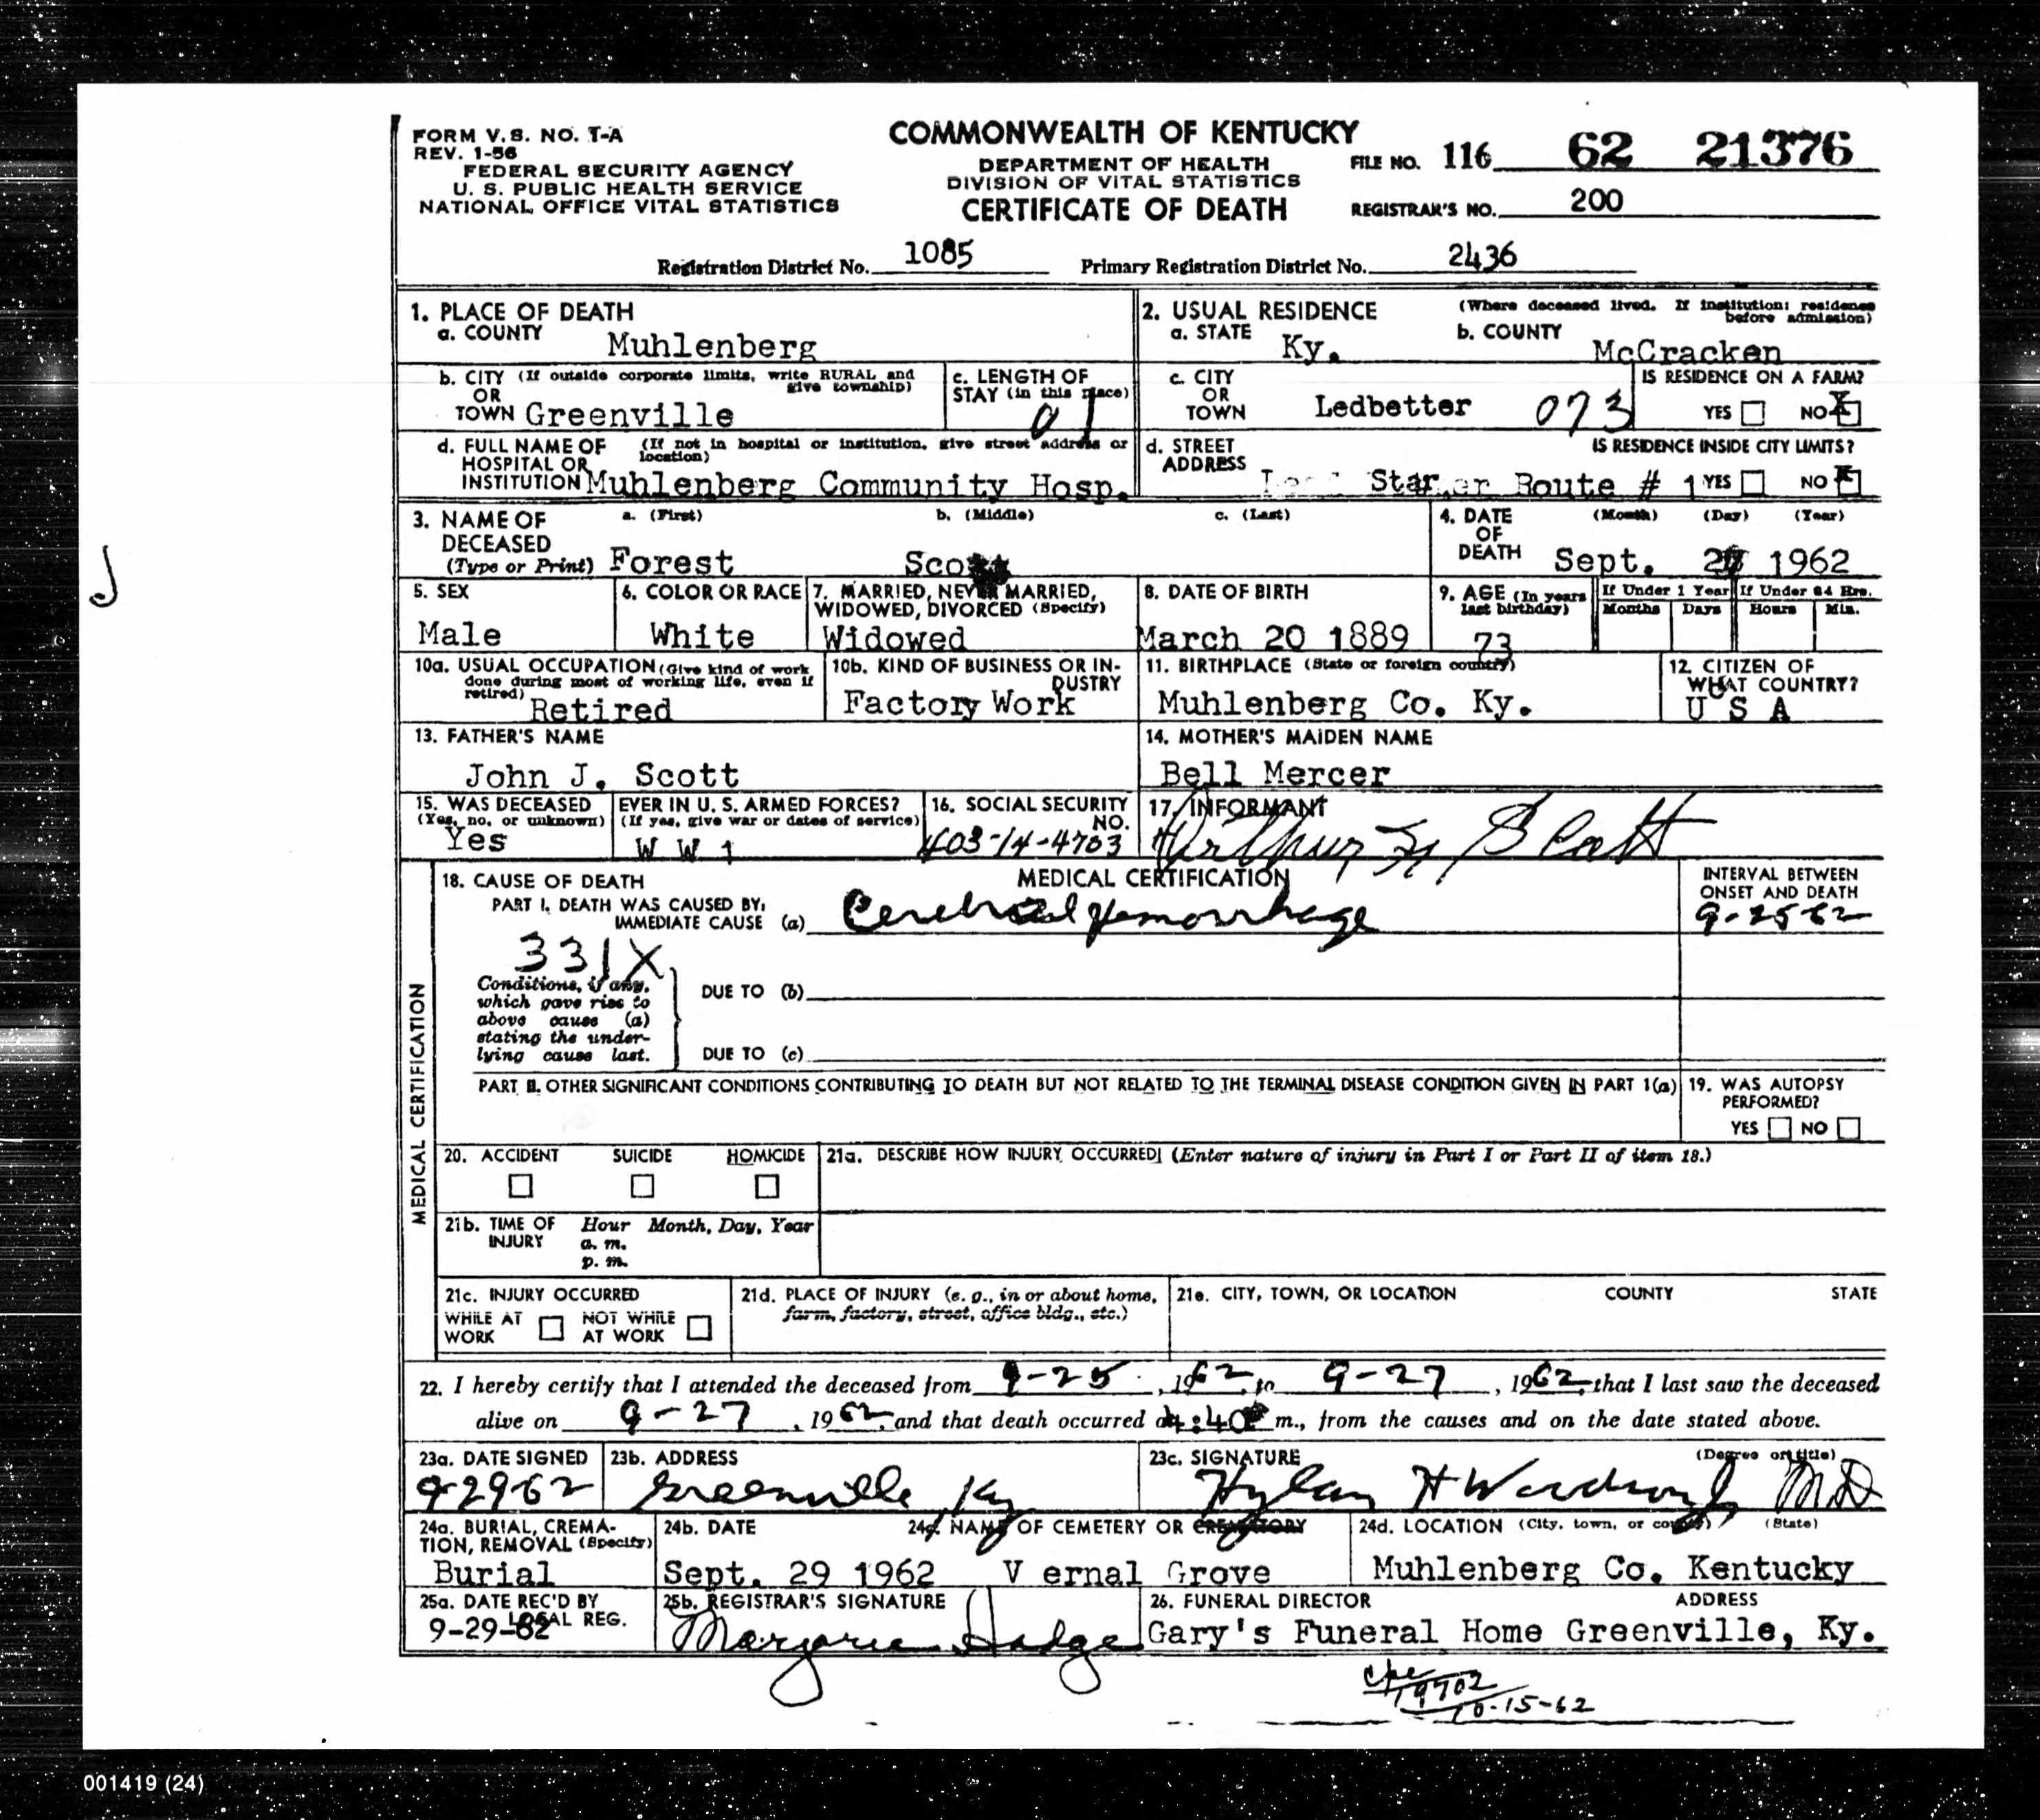 FORM V. S. NO. 1-A
REV. 1-56
FEDERAL SECURITY AGENCY
U. S. PUBLIC HEALTH SERVICE
NATIONAL OFFICE VITAL STATISTICS
COMMONWEALTH OF KENTUCKY
DEPARTMENT OF HEALTH
DIVISION OF VITAL STATISTICS
CERTIFICATE OF DEATH
FILE NO. 116 62 21376
REGISTRAR'S NO. 200
Registration District No. 1085 Primary Registration District No. 2436
1. PLACE OF DEATH
a. COUNTY Muhlenberg
2. USUAL RESIDENCE (Where deceased lived. If institution: residence before admission)
a. STATE Ky. b. COUNTY McCracken
b. CITY (If outside corporate limits, write RURAL and give township)
OR
TOWN Greenville
c. LENGTH OF
STAY (in this place)
c. CITY
OR
TOWN Ledbetter 073
IS RESIDENCE ON A FARM?
YES NO X
d. FULL NAME OF (If not in hospital or institution, give street address or location)
HOSPITAL OR
INSTITUTION Muhlenberg Community Hosp.
d. STREET
ADDRESS Star Route # 1
IS RESIDENCE INSIDE CITY LIMITS?
YES NO X
3. NAME OF
DECEASED
(Type or Print)
a. (First) b. (Middle) c. (Last)
Forest Scott
4. DATE
OF
DEATH
(Month) (Day) (Year)
Sept. 27 1962
5. SEX
Male
6. COLOR OR RACE
White
7. MARRIED, NEVER MARRIED,
WIDOWED, DIVORCED (Specify)
Widowed
8. DATE OF BIRTH
March 20 1889
9. AGE (In years last birthday)
73
If Under 1 Year If Under 24 Hrs.
Months Days Hours Min.
10a. USUAL OCCUPATION (Give kind of work done during most of working life, even if retired)
Retired
10b. KIND OF BUSINESS OR INDUSTRY
Factory Work
11. BIRTHPLACE (State or foreign country)
Muhlenberg Co. Ky.
12. CITIZEN OF
WHAT COUNTRY?
U S A
13. FATHER'S NAME
John J. Scott
14. MOTHER'S MAIDEN NAME
Bell Mercer
15. WAS DECEASED EVER IN U. S. ARMED FORCES?
(Yes, no, or unknown) (If yes, give war or dates of service)
Yes W W 1
16. SOCIAL SECURITY NO.
403-14-4703
17. INFORMANT
Arthur Scott
MEDICAL CERTIFICATION
18. CAUSE OF DEATH
MEDICAL CERTIFICATION
INTERVAL BETWEEN
ONSET AND DEATH
PART I. DEATH WAS CAUSED BY:
IMMEDIATE CAUSE (a) Cerebral Hemorrhage 9-25 62
331X
Conditions, if any,
which gave rise to
above cause (a)
stating the under-
lying cause last.
DUE TO (b)
DUE TO (c)
PART II. OTHER SIGNIFICANT CONDITIONS CONTRIBUTING TO DEATH BUT NOT RELATED TO THE TERMINAL DISEASE CONDITION GIVEN IN PART 1(a)
19. WAS AUTOPSY
PERFORMED?
YES NO
20. ACCIDENT SUICIDE HOMICIDE
21a. DESCRIBE HOW INJURY OCCURRED (Enter nature of injury in Part I or Part II of item 18.)
21b. TIME OF
INJURY
Hour Month, Day, Year
a. m.
p. m.
21c. INJURY OCCURRED
WHILE AT
WORK
NOT WHILE
AT WORK
21d. PLACE OF INJURY (e. g., in or about home,
farm, factory, street, office bldg., etc.)
21e. CITY, TOWN, OR LOCATION COUNTY STATE
22. I hereby certify that I attended the deceased from 9-25, 1962, to 9-27, 1962, that I last saw the deceased
alive on 9-27, 1962, and that death occurred at 4:40 P m., from the causes and on the date stated above.
23a. DATE SIGNED
9 29 62
23b. ADDRESS
Greenville Ky
23c. SIGNATURE (Degree or title)
Hylan H Woodson MD
24a. BURIAL, CREMA-
TION, REMOVAL (Specify)
Burial
24b. DATE
Sept. 29 1962
24c. NAME OF CEMETERY OR CREMATORY
V ernal Grove
24d. LOCATION (City, town, or county) (State)
Muhlenberg Co. Kentucky
25a. DATE REC'D BY
LOCAL REG.
9-29-62
25b. REGISTRAR'S SIGNATURE
Marjorie Hodge
26. FUNERAL DIRECTOR ADDRESS
Gary's Funeral Home Greenville, Ky.
19702
10-15-62
001419 (24)